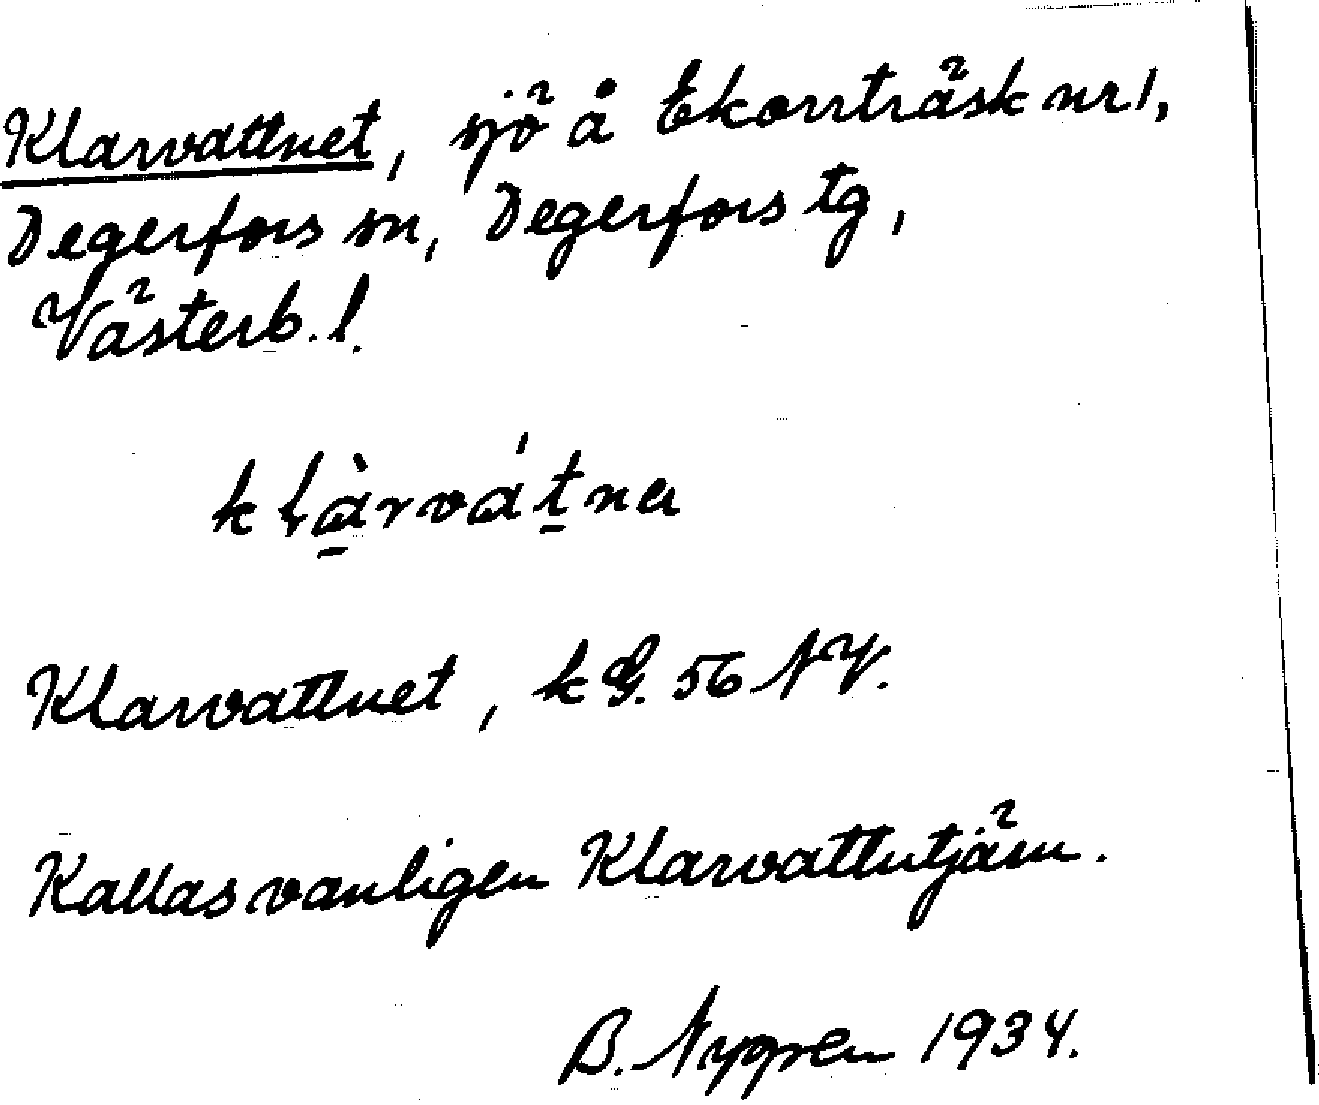 Klarvattnet, sjö å Ekorrträsk nr 1,
Degerfors sn, Degerfors tg,
Västerb. l.
klàrvátna
Klarvattnet, k G. 56 NV.
Kallas vanligen Klarvattutjärn.
B. Nygren 1934.